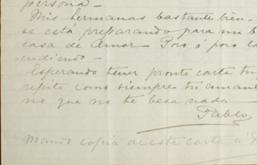 persona —
Mis hermanas bastante bien
se está preparando para un b
casa de Amor Poro ó poro la
endiendo —
Esperando tener pronto carta tu
repito como siempre tu amante
no que no te besa nada
Pablo
Mando copia de esta carta a